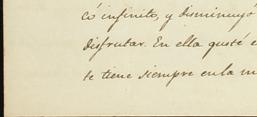 có infinito, y disminuyó
disfrutar. En ella gusté e
te tiene siempre en la m